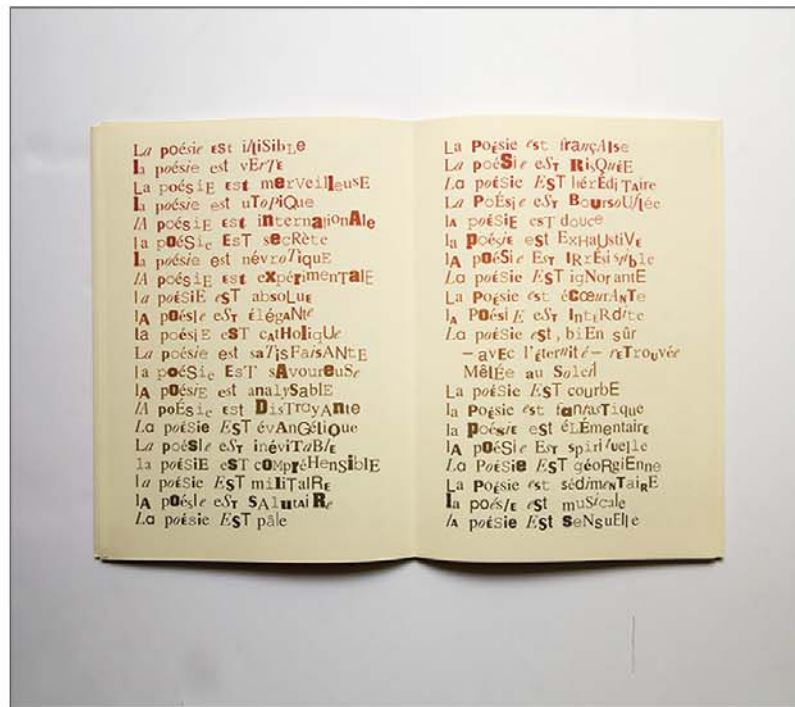 La poésie EST illiSibLe
la poésie est vERTE
La poésiE EST merveilleusE
la poésie est uTOPiQue
lA poÉSiE EST internationAle
la poÉSie EsT secRète
la poésie est névroTiquE
lA poÉSiE EST expérimenTalE
la poésiE eST absoLuE
lA pOésIe eST ÉlégANte
la poésiE eST cAtHoliqUe
La poésie est saTisFaisANTe
la poÉSie EsT sAvoureuSe
lA pOésiE est analySablE
lA poÉsie EST DisTrayAnte
La poésie EST évAnGéliQue
La poéSIe eST inéviTaBlE
la poésiE eST cOMpréHensiblE
la poésie EST miliTaIRE
lA pOésIe eST SAlutaiRe
La poésie EST pâle
La Poésie est françAIse
La poéSie eST RisQuÉE
La poésie EST hérÉdiTAire
La PoÉsie eST BoursoUflée
lA poésiE esT douce
la poésie est ExHaUstiVE
lA pOÉSie EsT IRrÉsisTible
La poésie EST igNorantE
La Poésie est éCœurANTe
lA POésIE eST InteRdite
La poésie est, biEn sûr
– avEc l'éterniTé – reTrouvée
MêlÉe au Soleil
La poésie EST courbE
la Poésie est fanTasTique
la poésie eSt éLÉmentairE
lA pOÉSie EsT spiriTuelle
La PoÉSie EST géoRgiEnne
La Poésie est sédimeNTaiRE
la poésIE eSt muSicale
lA poÉsie ESt SeNsuElle